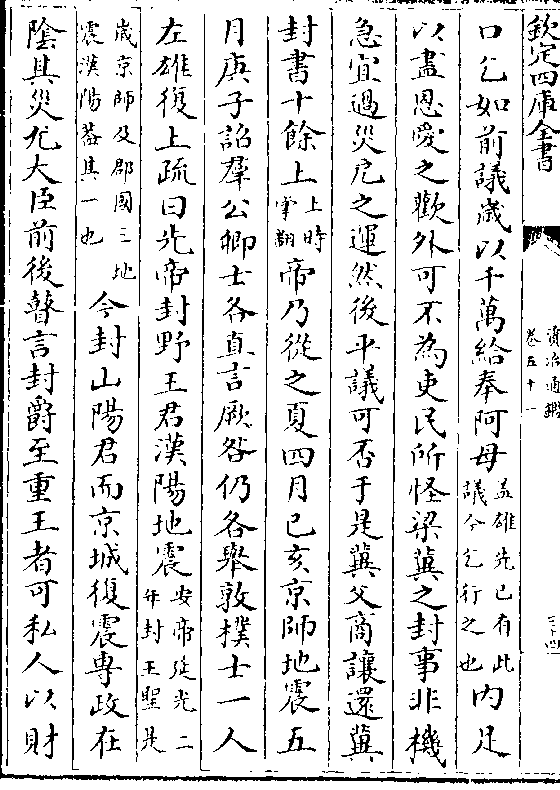 欽定四庫全書
資治通鑑
卷五十一
三十四
口乞如前議歲以千萬給奉阿母蓋雄先已有此議今乞行之也內足
以盡恩愛之歡外可不為吏民所怪梁冀之封事非機
急宜過災戹之運然後平議可否于是冀父商讓還冀
封書十餘上上時掌翻帝乃從之夏四月己亥京師地震五
月庚子詔羣公卿士各直言厥咎仍各舉敦樸士一人
左雄復上疏曰先帝封野王君漢陽地震安帝延光二年封王聖是
歲京師及郡國三地震漢陽蓋其一也今封山陽君而京城復震專政在
陰其災尤大臣前後瞽言封爵至重王者可私人以財